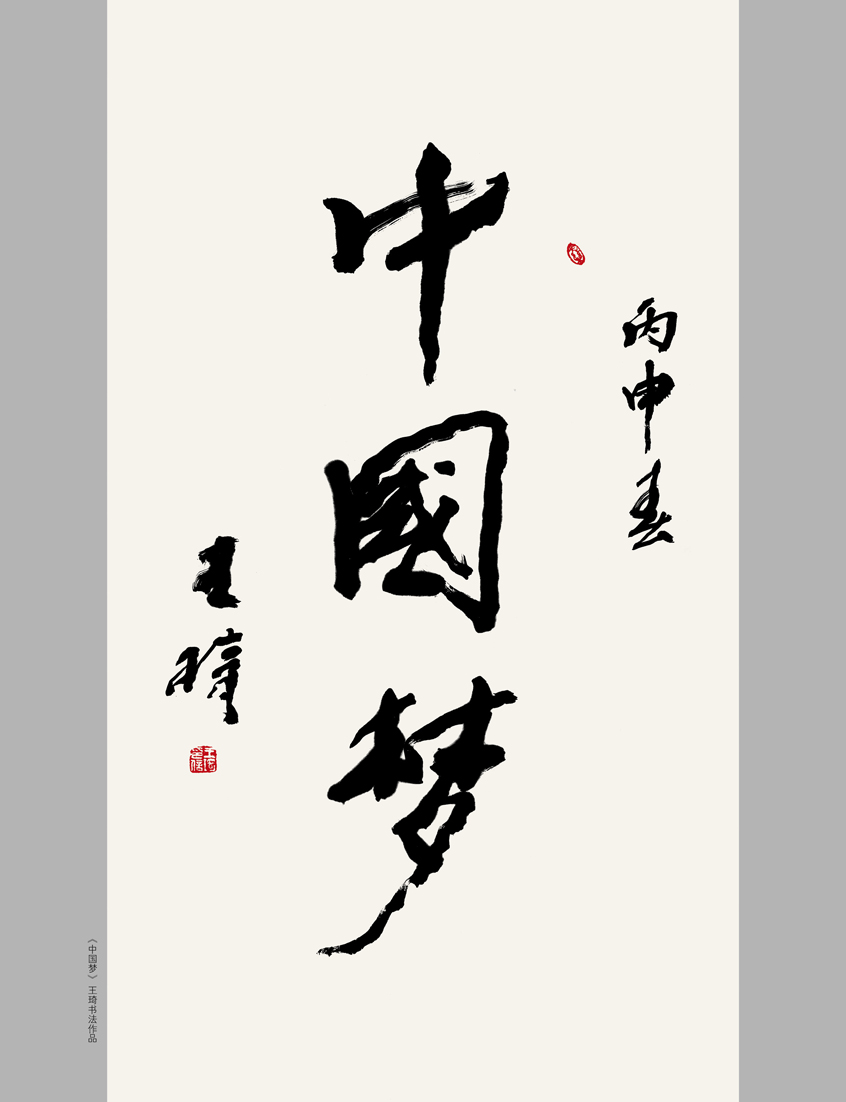 丙申春
中國梦
王琦
《中国梦》王琦书法作品